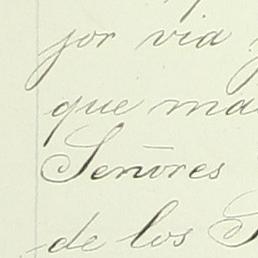 por via
que ma
Señores
de los S